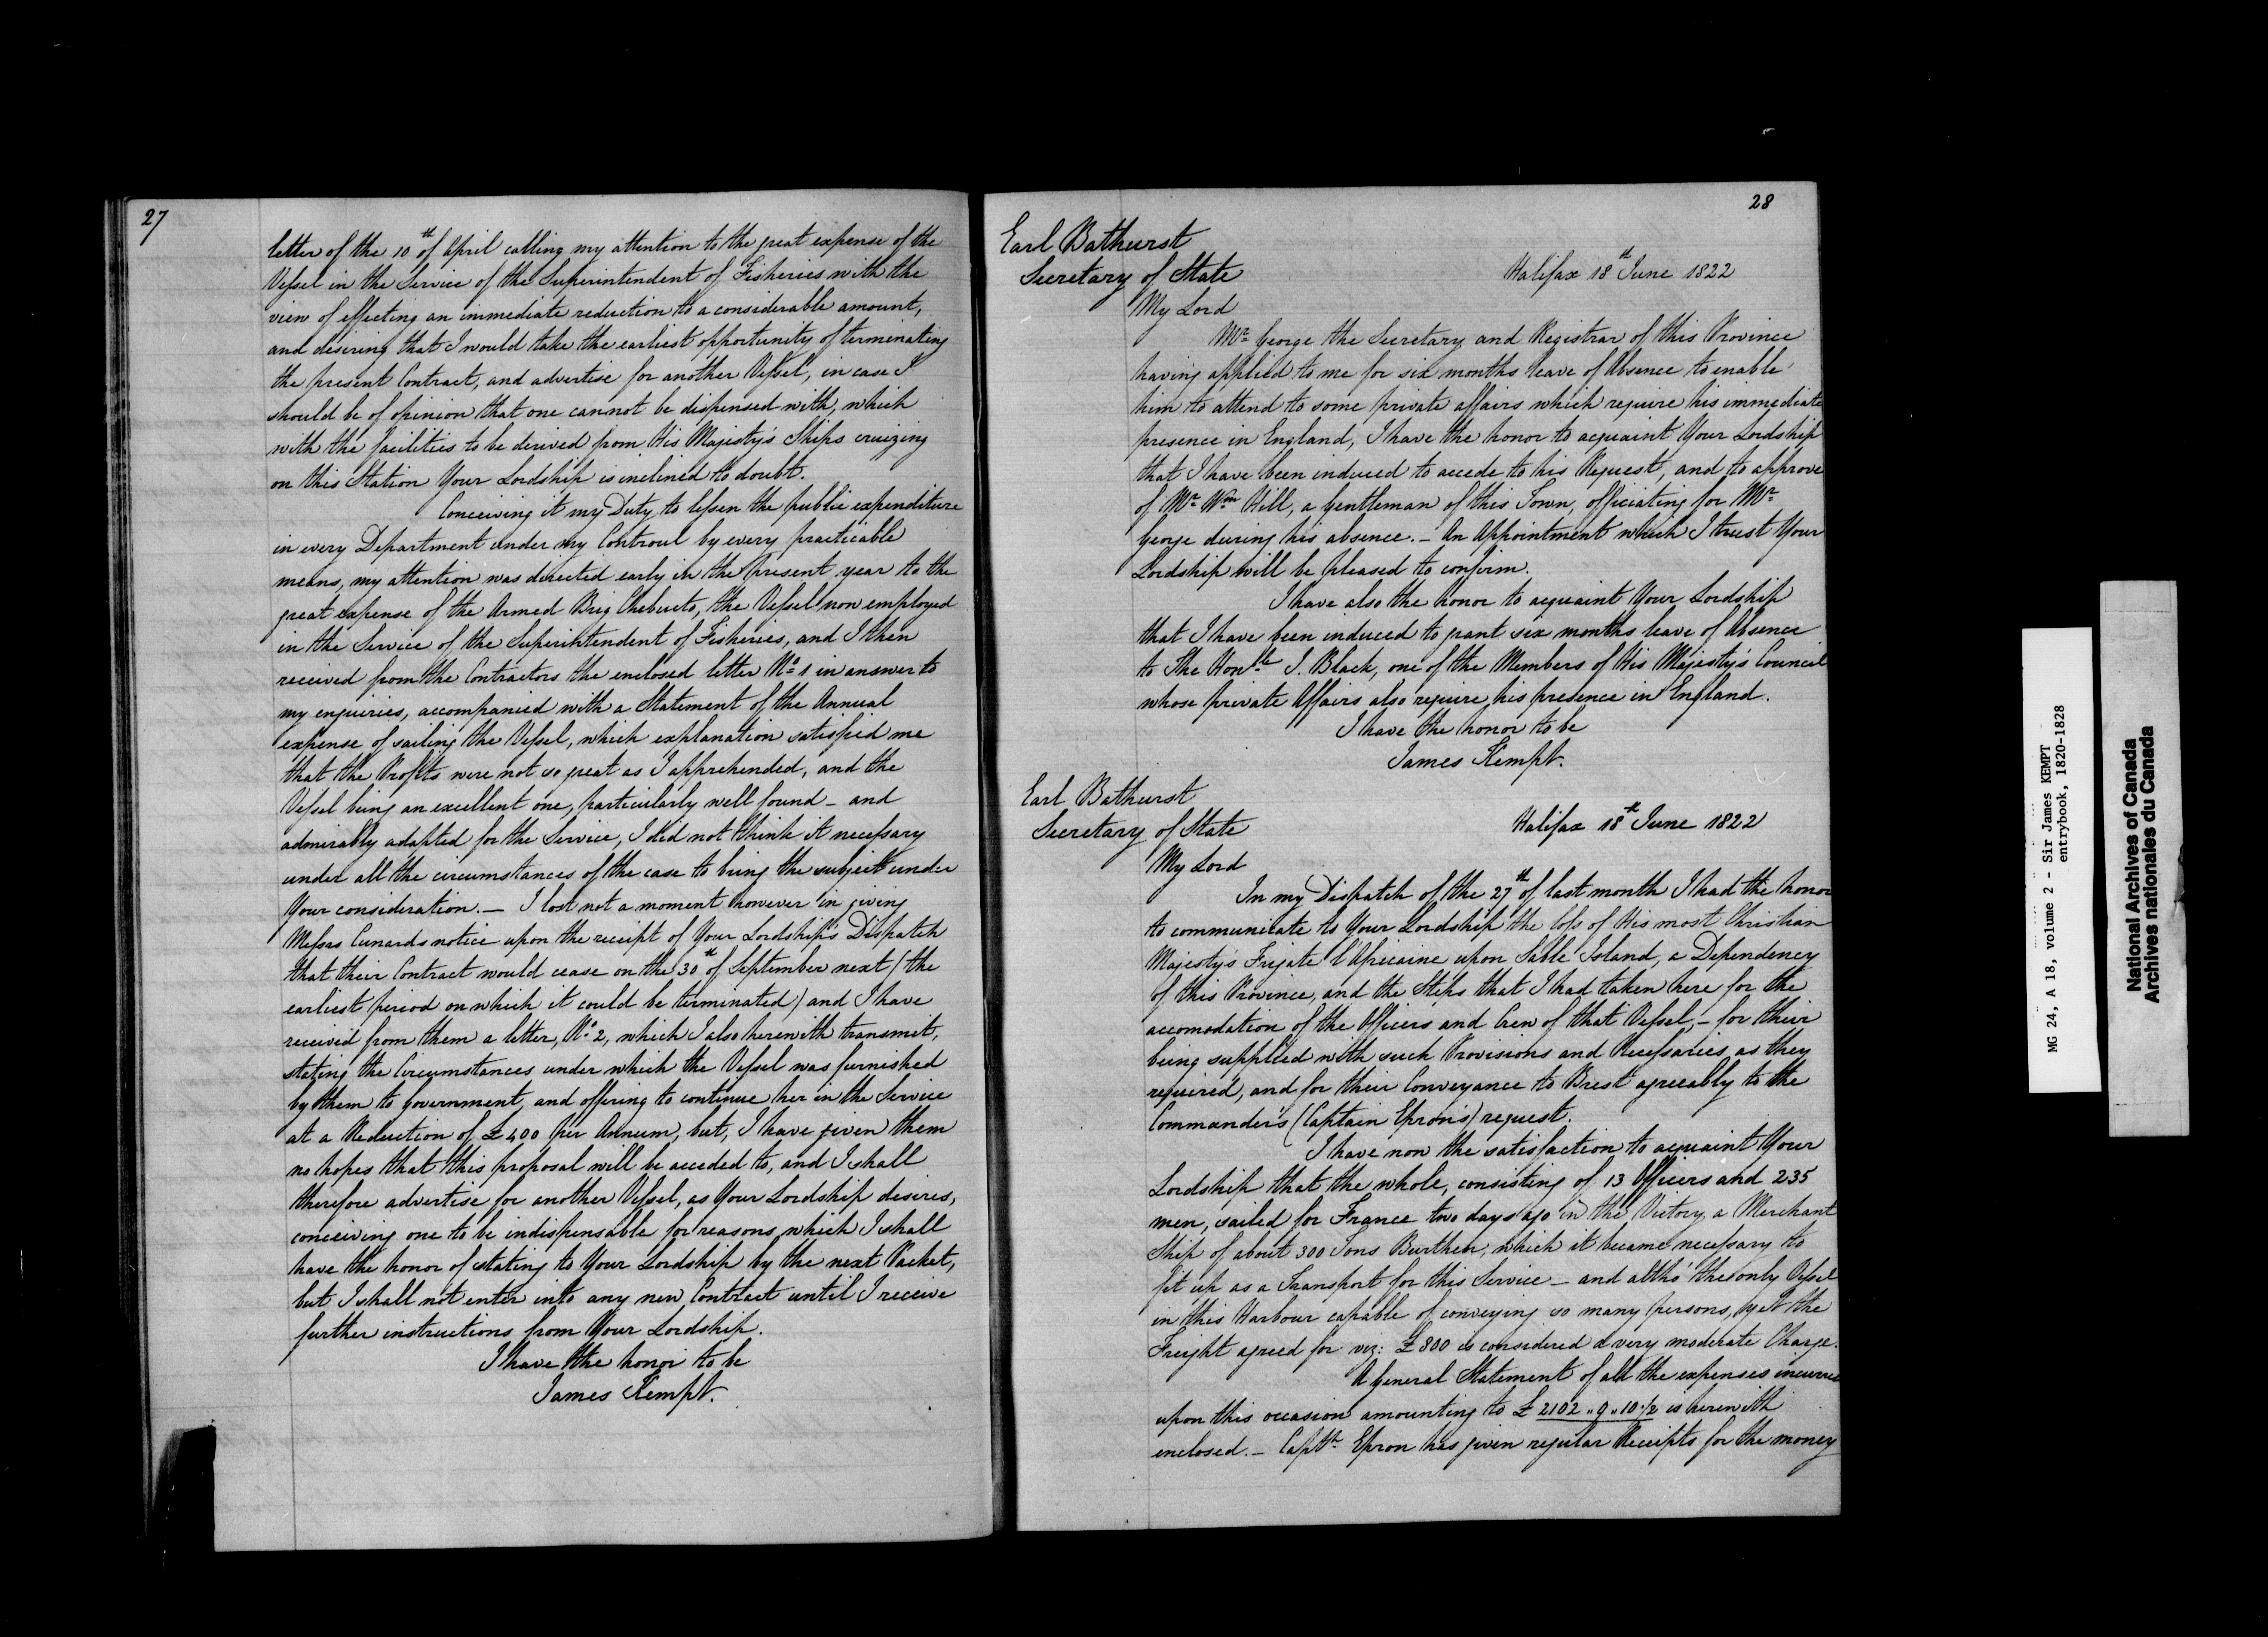 27
letter of the 10th of April calling my attention to the great expense of the
Vessel in the Service of the Superintendent of Fisheries with the
view of effecting an immediate reduction to a considerable amount,
and desiring that I would take the earliest opportunity of terminating
the present Contract, and advertise for another Vessel, in case I
should be of opinion that one cannot be dispensed with, which
with the facilities to be derived from His Majesty's Ships cruizing
on this Station Your Lordship is inclined to doubt.
Conceiving it my Duty to lessen the public expenditure
in every Department under my Controul by every practicable
means, my attention was directed early in the present year to the
great expense of the Armed Brig Chebucto, the Vessel now employed
in the Service of the Superintendent of Fisheries, and I then
received from the Contractors the enclosed letter No 1 in answer to
my enquiries, accompanied with a Statement of the Annual
expense of sailing the Vessel, which explanation satisfied me
that the Profits were not so great as I apprehended, and the
Vessel being an excellent one, particularly well found - and
admirably adapted for the Service, I did not think it necessary
under all the circumstances of the case to bring the subject under
Your consideration. - I lost not a moment however in giving
Messrs Cunards notice upon the receipt of Your Lordship's Dispatch
that their Contract would cease on the 30th of September next (the
earliest period on which it could be terminated) and I have
received from them a letter, No 2, which I also herewith transmit,
stating the Circumstances under which the Vessel was furnished
by them to Government, and offering to continue her in the Service
at a Reduction of £400 per Annum, but, I have given them
no hopes that this proposal will be acceded to, and I shall
therefore advertise for another Vessel, as Your Lordship desires,
conceiving one to be indispensable for reasons which I shall
have the honor of stating to Your Lordship by the next Packet,
but I shall not enter into any new Contract until I receive
further instructions from Your Lordship.
I have the honor to be
James Kempt.
28
Earl Bathurst
Secretary of State
Halifax 18th June 1822
My Lord
Mr George the Secretary and Registrar of this Province
having applied to me for six months leave of Absence to enable
him to attend to some private affairs which require his immediate
presence in England, I have the honor to acquaint Your Lordship
that I have been induced to accede to his Request, and to approve
of Mr Wm Hill, a Gentleman of this Town, officiating for Mr
George during his absence. - An Appointment which I trust Your
Lordship will be pleased to confirm.
I have also the honor to acquaint Your Lordship
that I have been induced to grant six months leave of Absence
to The Honble J. Black, one of the Members of His Majesty's Council
whose private Affairs also require his presence in England.
I have the honor to be
James Kempt.
Earl Bathurst
Secretary of State
Halifax 18th June 1822
My Lord
In my Dispatch of the 27th of last month I had the honor
to communicate to Your Lordship the loss of His most Christian
Majesty's Frigate l'Africaine upon Sable Island, a Dependency
of this Province, and the Steps that I had taken here for the
accomodation of the Officers and Crew of that Vessel, - for their
being supplied with such Provisions and Necessaries as they
required, and for their Conveyance to Brest agreeably to the
Commander's (Captain Epron's) request.
I have now the satisfaction to acquaint Your
Lordship that the whole, consisting of 13 Officers and 235
men, sailed for France two days ago in the Victory a Merchant
Ship of about 300 Tons Burthen, which it became necessary to
fit up as a Transport for this Service - and altho' the only Vessel
in this Harbour capable of conveying so many persons, yet the
Freight agreed for viz: £800 is considered a very moderate Charge.
A General Statement of all the expenses incurred
upon this occasion amounting to £2102 " 9 " 10 1/2 is herewith
enclosed. - Captn Epron has given regular Receipts for the money
MG 24, A 18, volume 2 - Sir James KEMPT
entrybook, 1820-1828
National Archives of Canada
Archives nationales du Canada